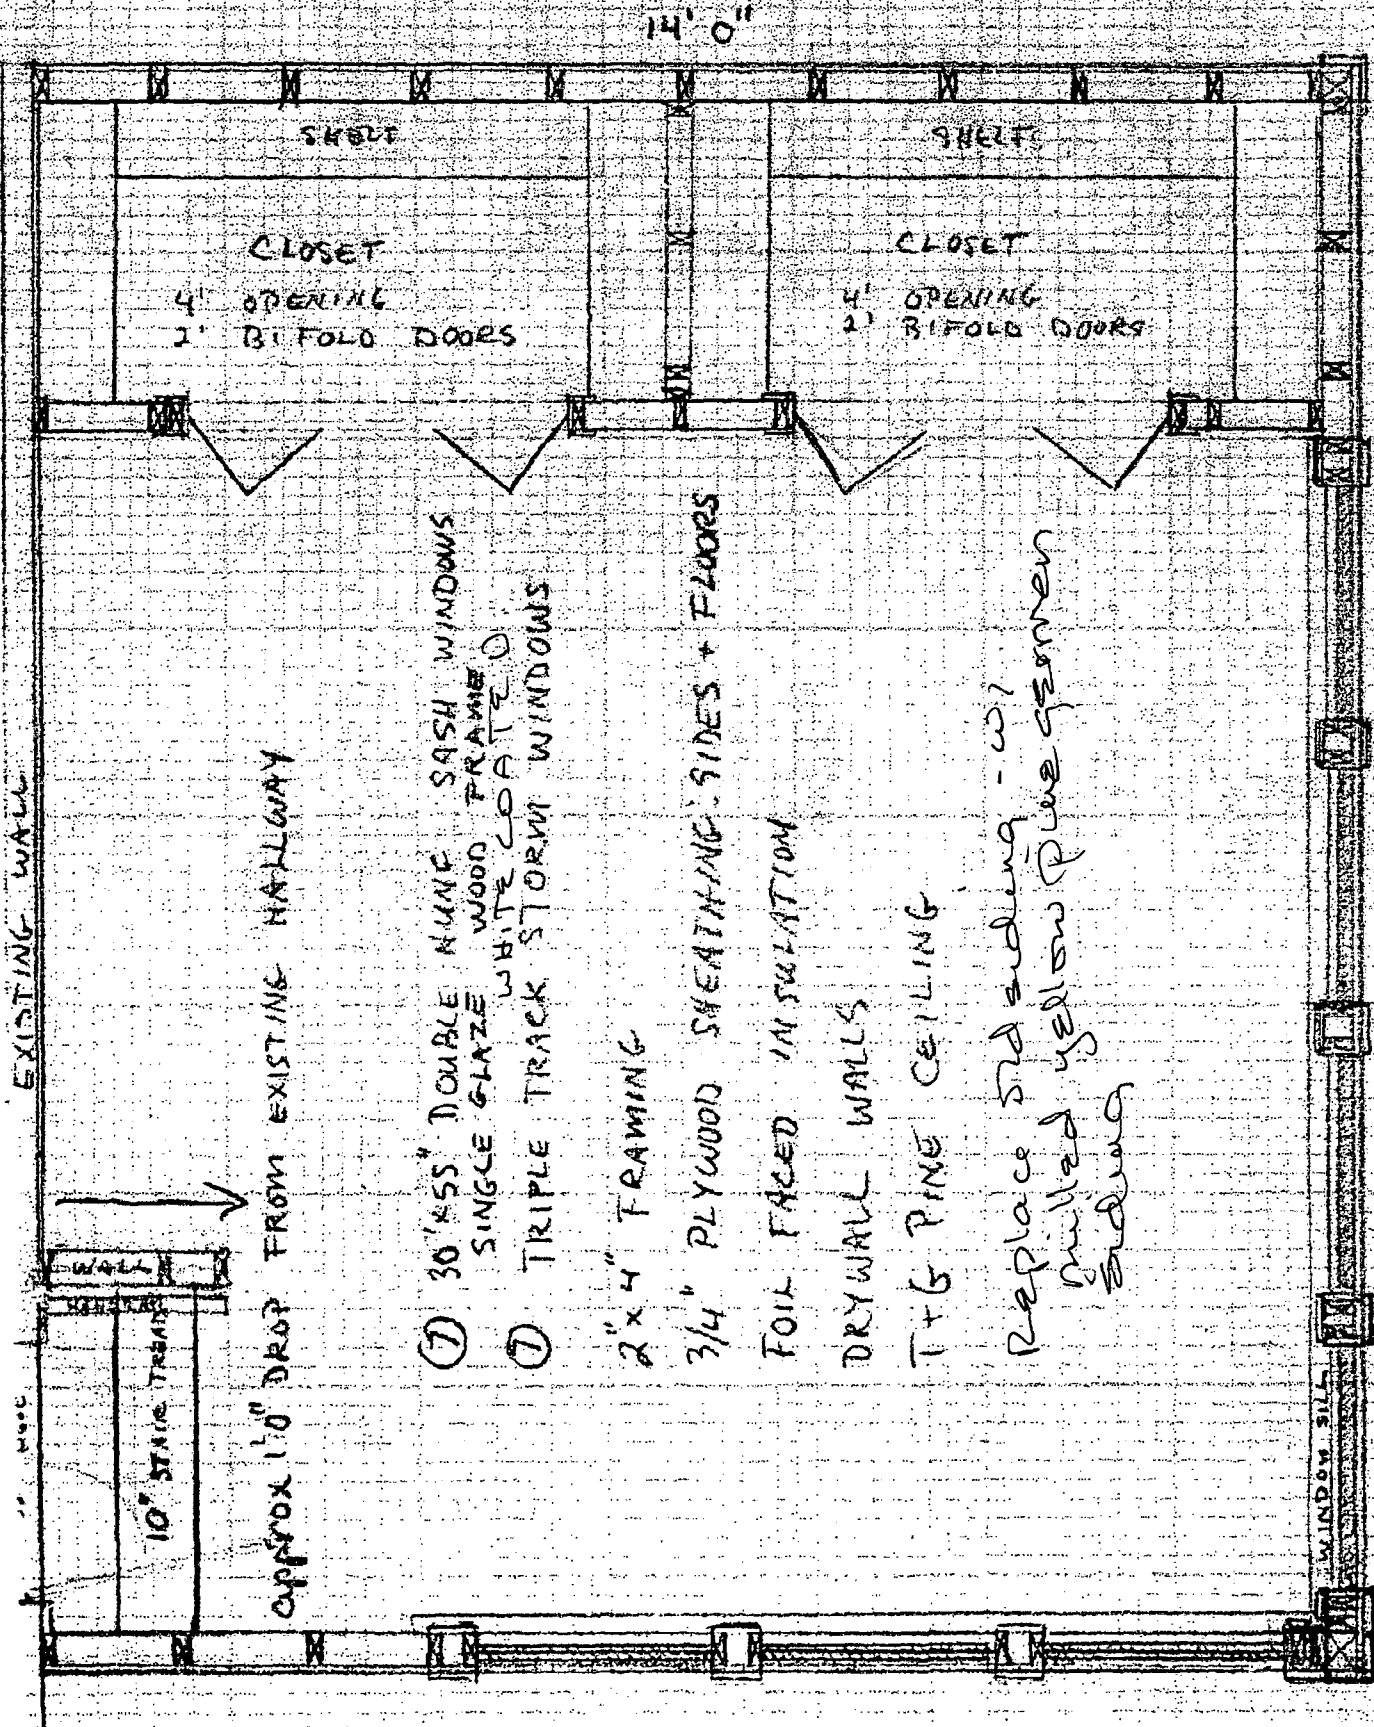 14' 0"
SHELF
SHELF
CLOSET
4' OPENING
2' BIFOLD DOORS
CLOSET
4' OPENING
2' BIFOLD DOORS
EXISTING WALL
WALL
10" STAIR TREAD
approx 1'0" DROP FROM EXISTING HALLWAY
7 30"x55" DOUBLE HUNG SASH WINDOWS
SINGLE GLAZE WOOD FRAME
WHITE COATED
7 TRIPLE TRACK STORM WINDOWS
2"x4" FRAMING
3/4" PLYWOOD SHEATHING: SIDES + FLOORS
FOIL FACED INSULATION
DRYWALL WALLS
T+G PINE CEILING
Replace old siding - w/
milled yellow pine german
siding
WINDOW SILL